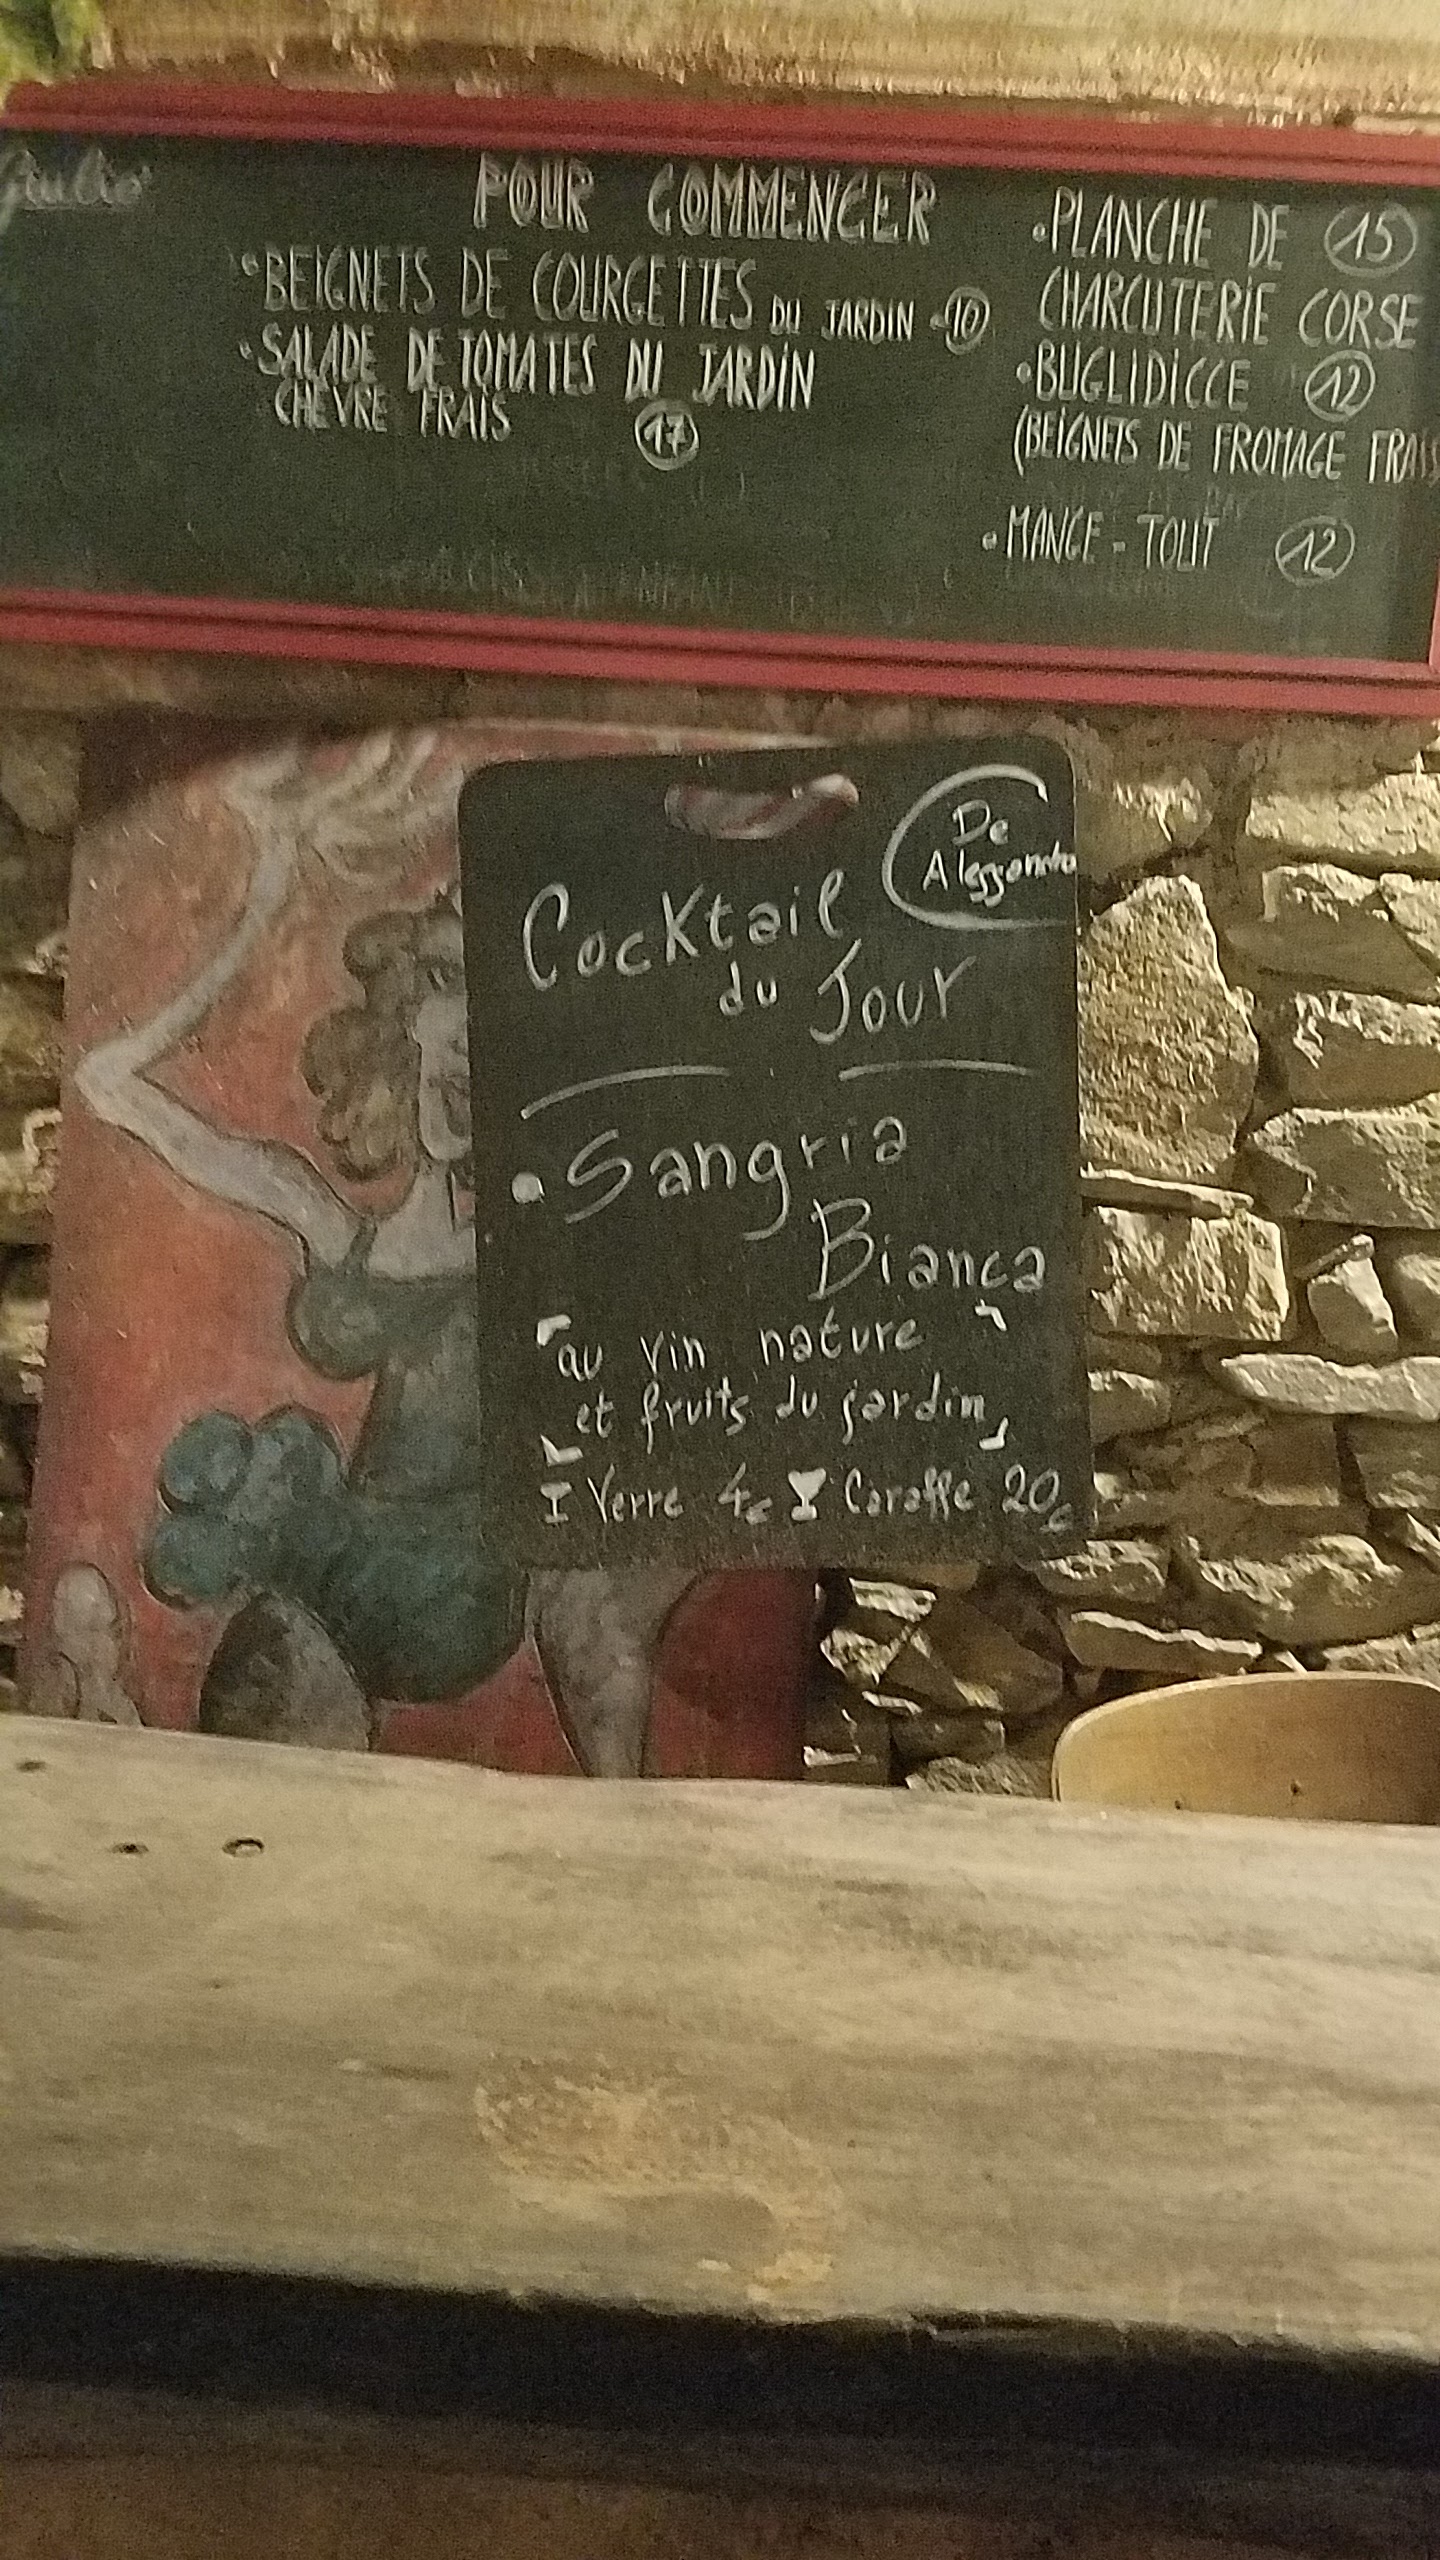 Giulio
POUR COMMENCER
• BEIGNETS DE COURGETTES DU JARDIN - 10
• SALADE DE TOMATES DU JARDIN
CHEVRE FRAIS 17
• PLANCHE DE 15
CHARCUTERIE CORSE
• BUGLIDICCE 12
(BEIGNETS DE FROMAGE FRAIS
• MANGE-TOUT 12
De
Alessandro
Cocktail
du Jour
• Sangria
Bianca
au vin nature
et fruits du jardin
Verre 4€ Caraffe 20€